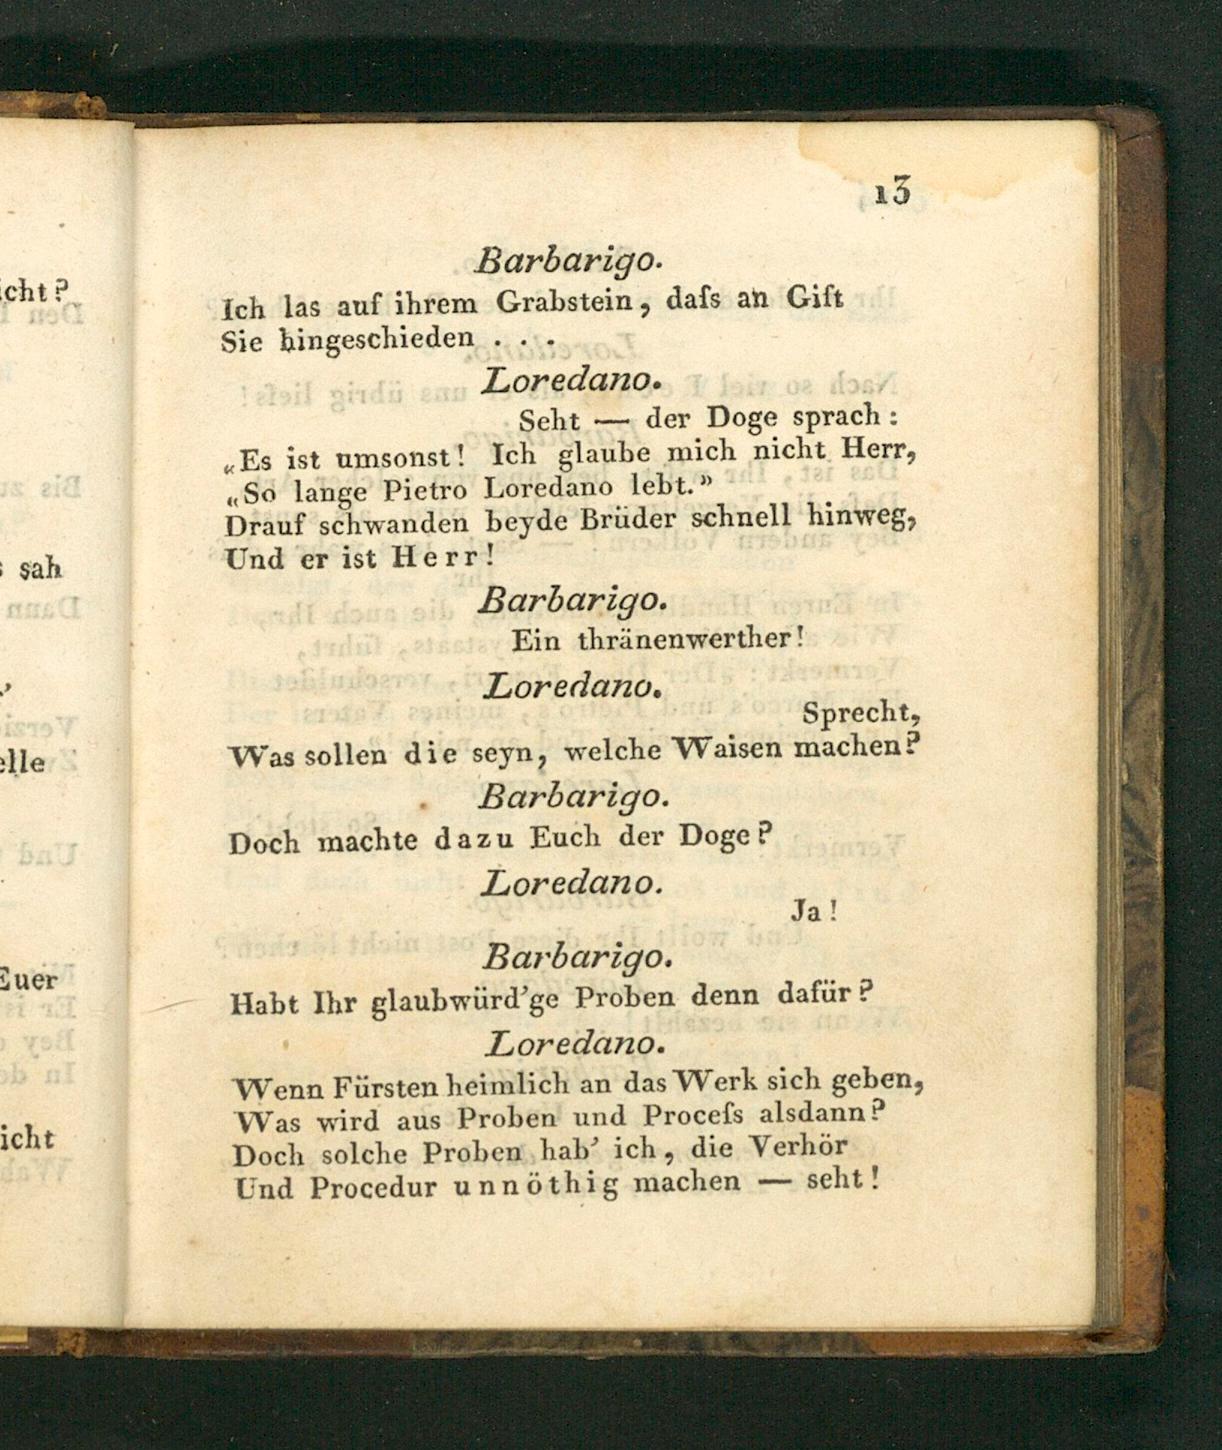 13
Barbarigo.
Ich las auf ihrem Grabstein, daſs an Gift
Sie hingeschieden . . .
Loredano.
Seht — der Doge sprach:
„Es ist umsonst! Ich glaube mich nicht Herr,
„So lange Pietro Loredano lebt.”
Drauf schwanden beyde Brüder schnell hinweg,
Und er ist Herr!
Barbarigo.
Ein thränenwerther!
Loredano.
Sprecht,
Was sollen die seyn, welche Waisen machen?
Barbarigo.
Doch machte dazu Euch der Doge?
Loredano.
Ja!
Barbarigo.
Habt Ihr glaubwürd’ge Proben denn dafür?
Loredano.
Wenn Fürsten heimlich an das Werk sich geben,
Was wird aus Proben und Proceſs alsdann?
Doch solche Proben hab’ ich, die Verhör
Und Procedur unnöthig machen — seht!